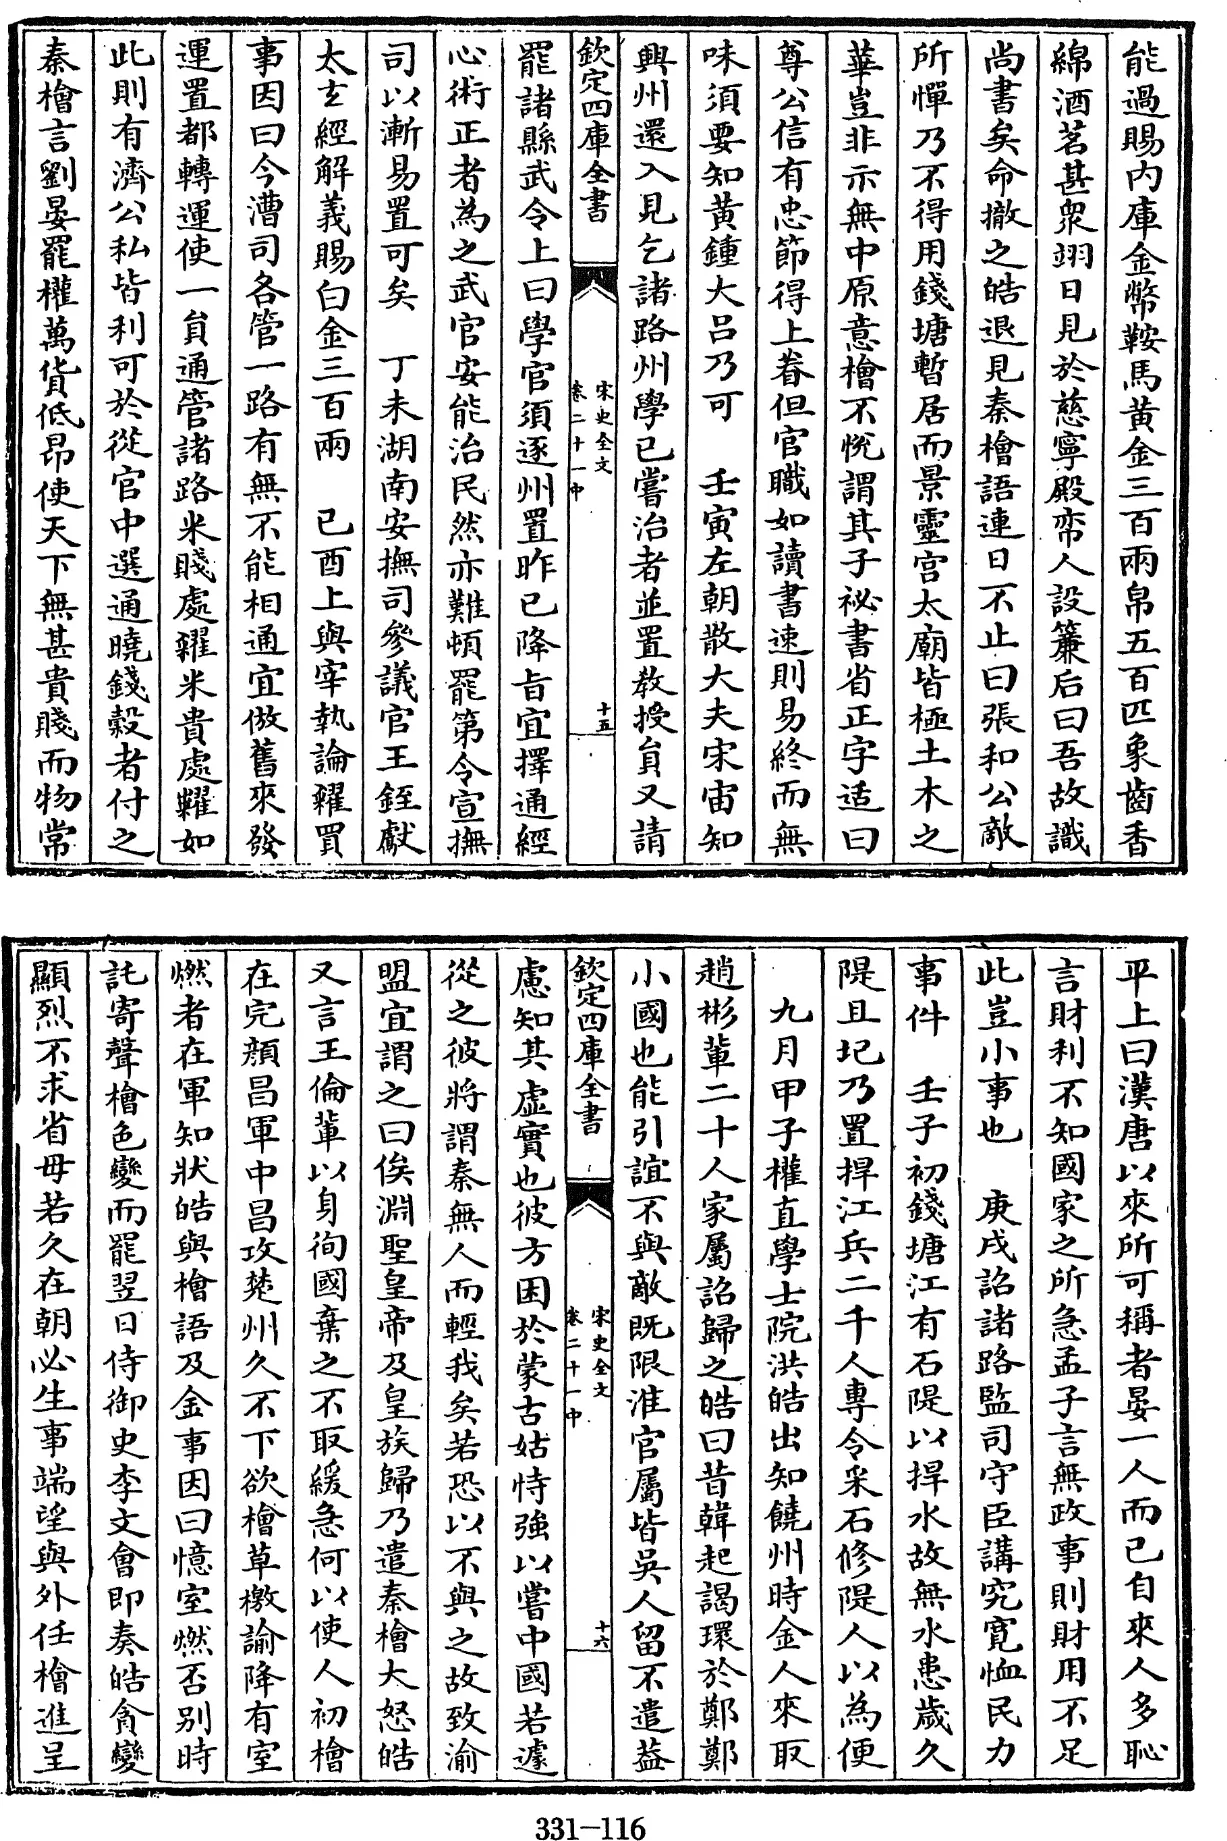 能過賜内庫金幣鞍馬黄金三百兩帛五百匹象齒香
綿酒茗甚衆翊日見於慈寧殿帘人設簾后曰吾故識
尚書矣命撤之皓退見秦檜語連日不止曰張和公敵
所憚乃不得用錢塘暫居而景靈宫太廟皆極土木之
華豈非示無中原意檜不悅謂其子祕書省正字适曰
尊公信有忠節得上眷但官職如讀書速則易終而無
味須要知黄鍾大吕乃可　壬寅左朝散大夫宋宙知
興州還入見乞諸路州學已嘗治者並置教授貟又請
欽定四庫全書
宋史全文
卷二十一中
十五
罷諸縣武令上曰學官須逐州置昨已降旨宜擇通經
心術正者為之武官安能治民然亦難頓罷第令宣撫
司以漸易置可矣　丁未湖南安撫司參議官王銍獻
太𤣥經解義賜白金三百兩　已酉上與宰執論糴買
事因曰今漕司各管一路有無不能相通宜倣舊來發
運置都轉運使一貟通管諸路米賤處糴米貴處糶如
此則有濟公私皆利可於從官中選通曉錢穀者付之
秦檜言劉晏罷榷萬貨低昂使天下無甚貴賤而物常
平上曰漢唐以來所可稱者晏一人而已自來人多恥
言財利不知國家之所急孟子言無政事則財用不足
此豈小事也　庚戌詔諸路監司守臣講究寛恤民力
事件　壬子初錢塘江有石隄以捍水故無水患歲久
隄且圮乃置捍江兵二千人專令采石修隄人以為便
九月甲子權直學士院洪皓出知饒州時金人來取
趙彬輩二十人家屬詔歸之皓曰昔韓起謁環於鄭鄭
小國也能引誼不與敵既限淮官屬皆吳人留不遣葢
欽定四庫全書
宋史全文
卷二十一中
十六
慮知其虛實也彼方困於蒙古姑恃強以嘗中國若遽
從之彼將謂秦無人而輕我矣若恐以不與之故致渝
盟宜謂之曰俟淵聖皇帝及皇族歸乃遣秦檜大怒皓
又言王倫輩以身徇國棄之不取緩急何以使人初檜
在完顔昌軍中昌攻楚州久不下欲檜草檄諭降有室
燃者在軍知狀皓與檜語及金事因曰憶室燃否别時
託寄聲檜色變而罷翌日侍御史李文會即奏皓貪變
顯烈不求省母若久在朝必生事端望與外任檜進呈
331-116